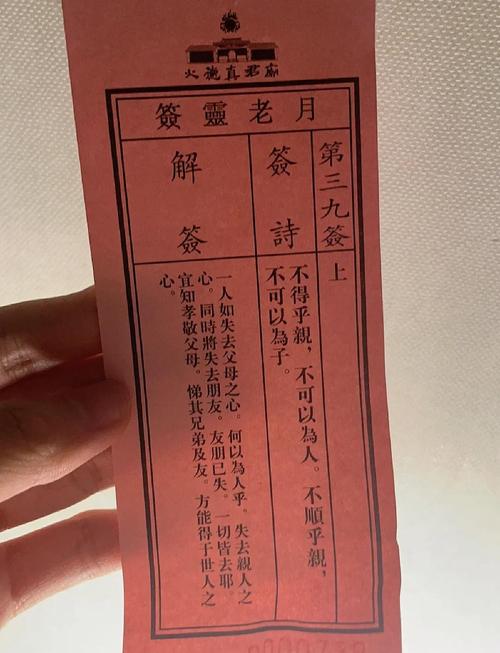 火德真君廟
月老靈簽
第三九簽
上
簽詩
不得乎親，不可以為人。不順乎親，
不可以為子。
解簽
一人如失去父母之心。何以為人乎。失去親人之
心。同時將失去朋友。友朋已失。一切皆去耶。
宜知孝敬父母。悌其兄弟及友。方能得于世人之
心。